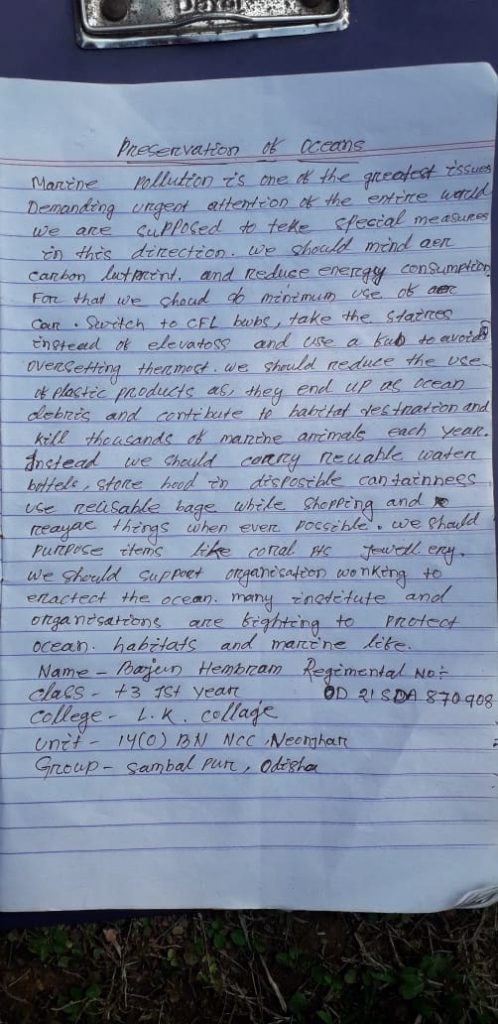 Preservation of Oceans
Marine Pollution is one of the greatest issues
Demanding urgent attention of the entire world
we are supposed to teke special measures
in this direction. we should mind aer
carbon futprint. and reduce energy consumption
For that we shoud do minimum use of aer
car. Switch to CFL bwbs, take the staires
instead of elevatoss and use a to avoid
oversetting thermost. we should reduce the use
of plastic products as, they end up as ocean
debris and contibute to habitat destnation and
kill thousands of marine animals each year.
Instead we should carry reuable water
bottels, store food in disposible containness
use reusable bage while shopping and
reayae things when ever possible. we should
purpose items like coral jewellery.
we should support organisation working to
the ocean. many institute and
organisations are fighting to protect
ocean. habitats and marine life.
Name - Barjun Hembram Regimental No:-
class - +3 1st year OD 21 SDA 870908
college - L.K. collage
unit - 14(O) BN NCC,
Group - Sambal pur, Odisha